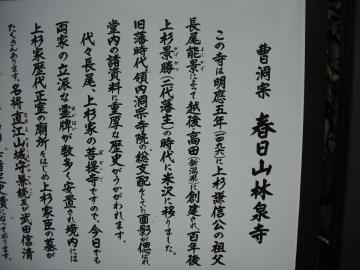 曹洞宗 春日山林泉寺
この寺は明應五年(一四九六)に上杉謙信公の祖父
長尾能景によって越後・高田(新潟県)に創建され百年後
上杉景勝(二代藩主)の時代に米沢に移りました。
旧藩時代、領内洞宗寺院の総支配をしていた面影が偲ばれ
堂内の諸資料に重厚な歴史がうかがわれます。
代々長尾、上杉家の菩提寺ですので、今日でも
両家の立派な霊牌が数多く安置され境内には
上杉家歴代正室の廟所をはじめ上杉家臣の墓が
たくさんあります。名将直江山城守兼続及び武田信清